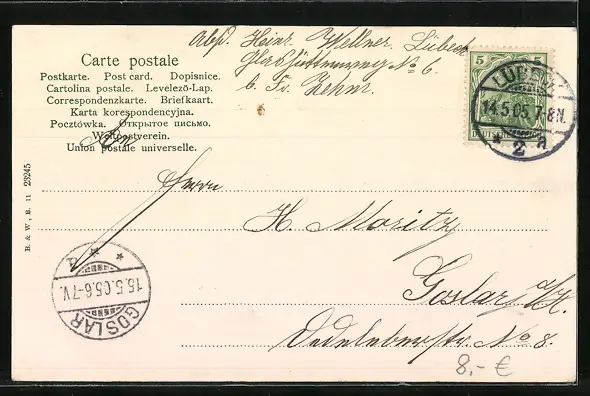 Carte postale
Postkarte. Post card. Dopisnice.
Cartolina postale. Levelező-Lap.
Correspondenzkarte. Briefkaart.
Karta korespondencyjna.
Pocztówka. Открытое письмо.
Weltpostverein.
Union postale universelle.
Abs. Heinr. Wellner, Lübeck
No 6.
b. Fr. Zehnr.
5 5
LÜBECK
14.5.05.7-8N.
* 2 a
B. & W., B. 11 23245
An
Herrn
H. Moritz
Goslar a/H.
No 8.
15.5.05.6-7V.
GOSLAR
8,- €